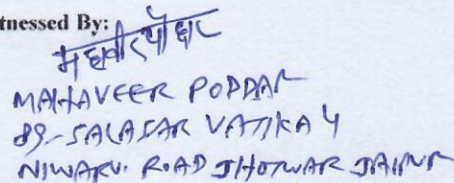 tnessed By:
महावीर पोद्दार
MAHAVEER PODDAR
89-SALASAR VATIKA 4
NIWARU. ROAD JHOTWAR JAIPUR